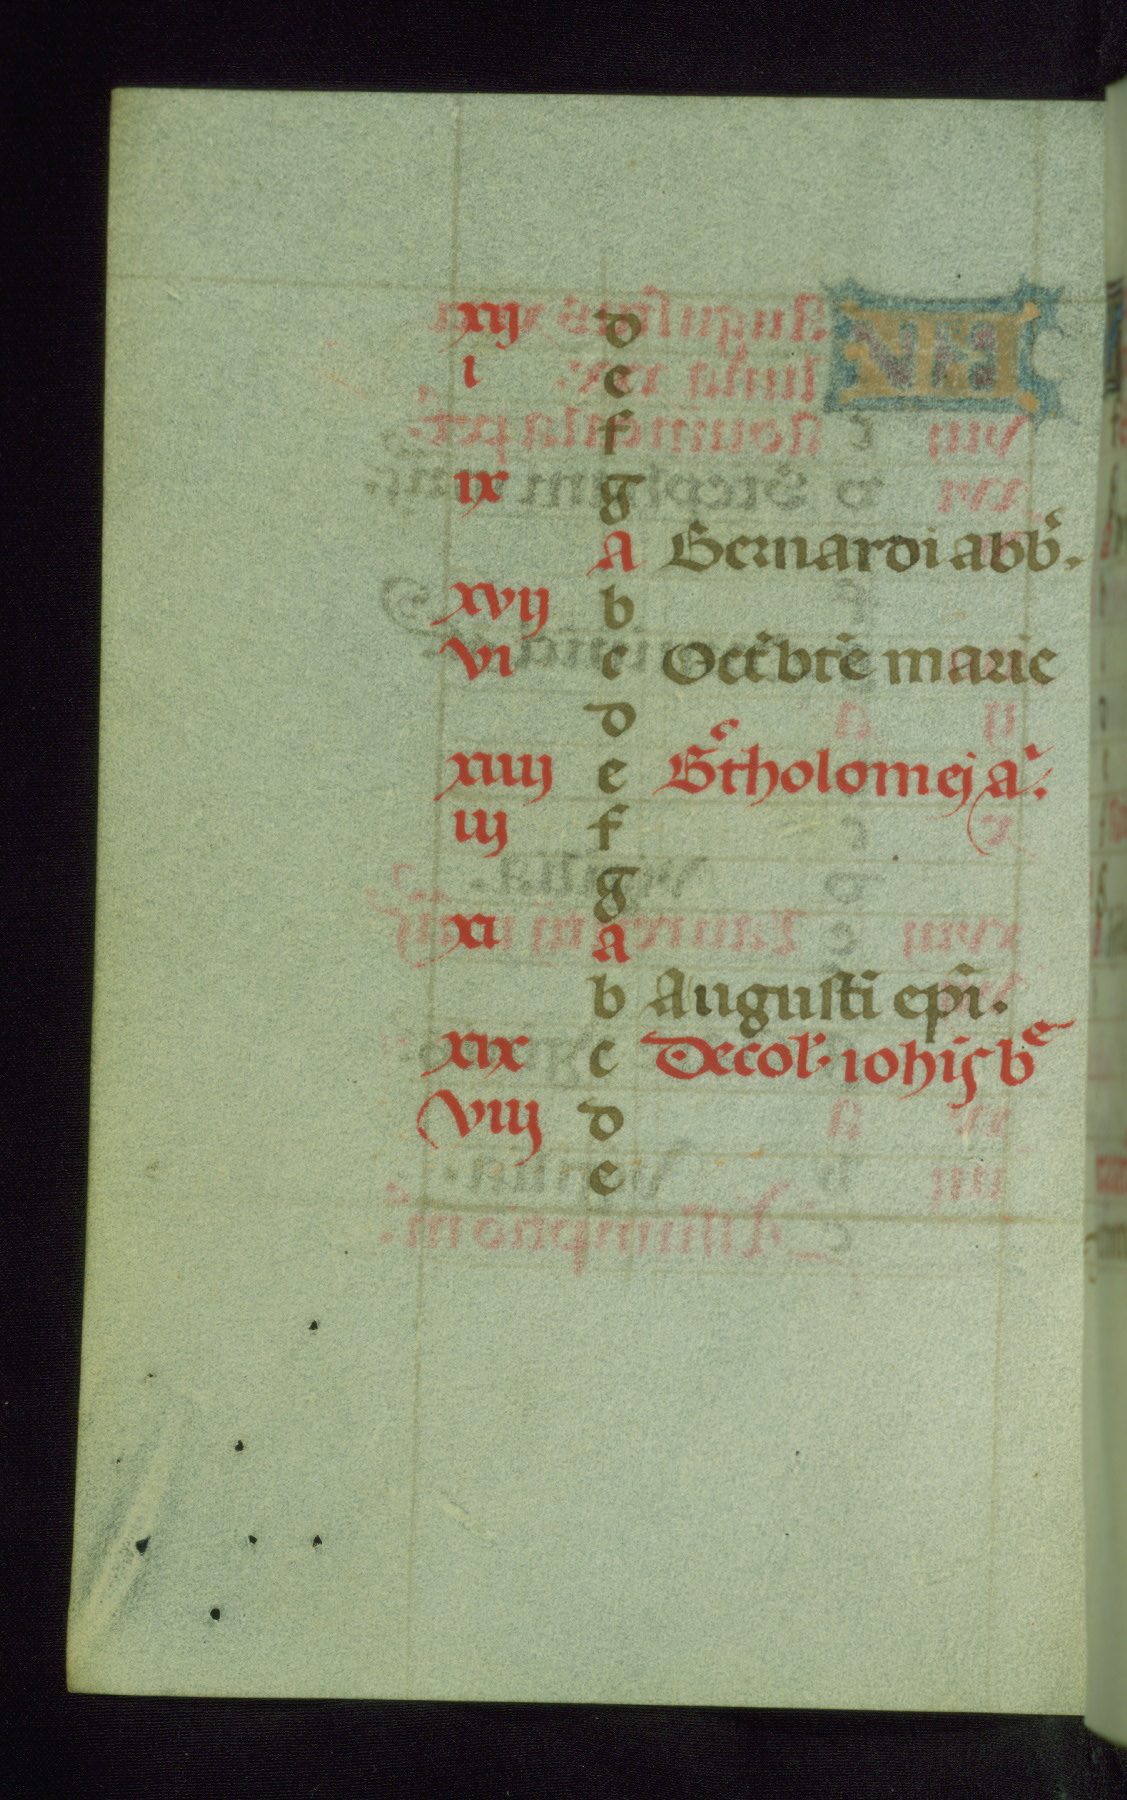 xij d
i e
f
ix g
A Bernardi abb̃.
xvij b
vi c Oct̃ bt̃e marie
d
xiiij e Bͨtholomej a.
iij f
g
xi A
b Augusti epĩ.
xix c Decol. iohis b
viij d
e